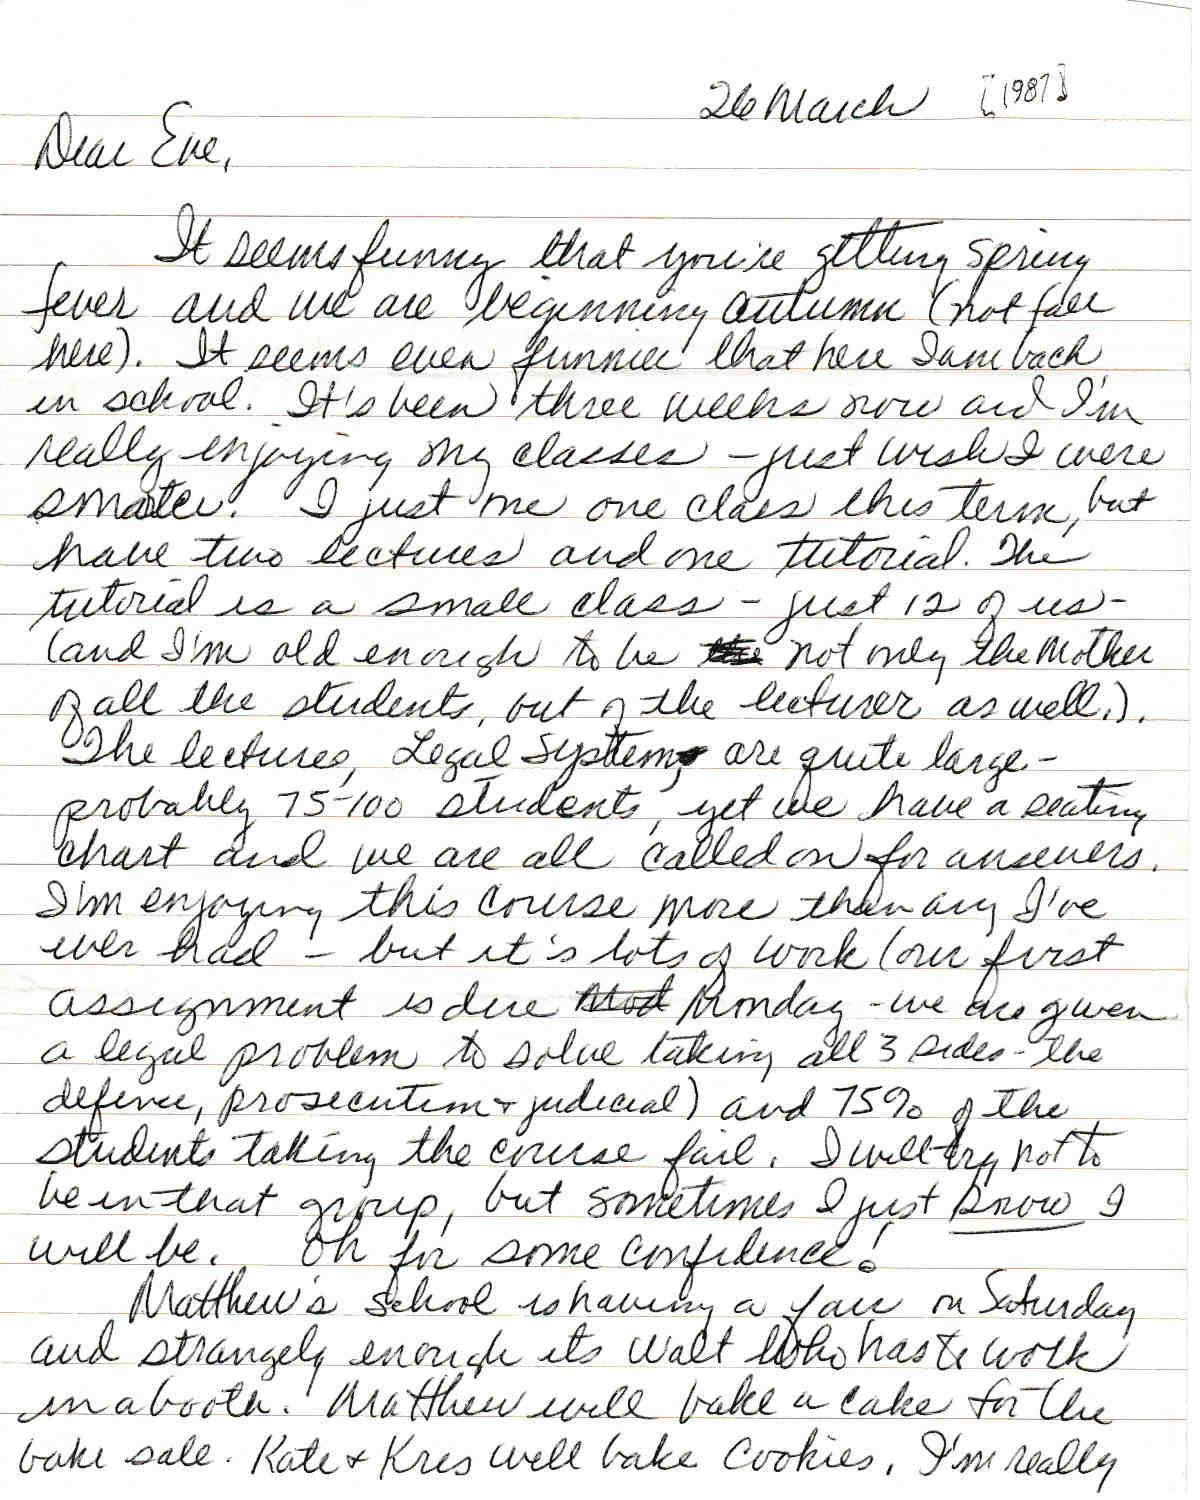 26 March [1987]
Dear Eve,
It seems funny that you're getting spring
fever and we are beginning autumn (not fall
here). It seems even funnier that here I am back
in school. It's been three weeks now and I'm
really enjoying my classes - just wish I were
smarter. I just me one class this term, but
have two lectures and one tutorial. The
tutorial is a small class - just 12 of us -
(and I'm old enough to be the not only the Mother
of all the students, but of the lecturer as well.).
The lectures, Legal Systems, are quite large -
probably 75-100 students, yet we have a seating
chart and we are all called on for answers.
I'm enjoying this course more than any I've
ever had - but it's lots of work (our first
assignment is due Mod Monday - we are given
a legal problem to solve taking all 3 sides - the
defence, prosecution + judicial) and 75% of the
students taking the course fail. I will try not to
be in that group, but sometimes I just know I
will be. Oh for some confidence!
Matthew's school is having a fair on Saturday
and strangely enough its Walt who has to work
in a booth. Matthew will bake a cake for the
bake sale. Kate + Kris will bake cookies. I'm really